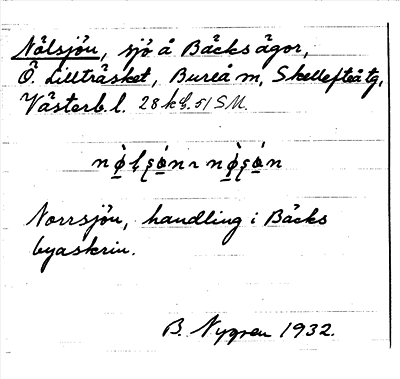 Nölsjön, sjö å Bäcks ägor,
Ö. Lillträsket, Bureå sn, Skellefteå tg,
Västerb. l. 28 kf. 51 SM.
Norrsjön, handling i Bäcks
byaskrin.
B. Nygren 1932.